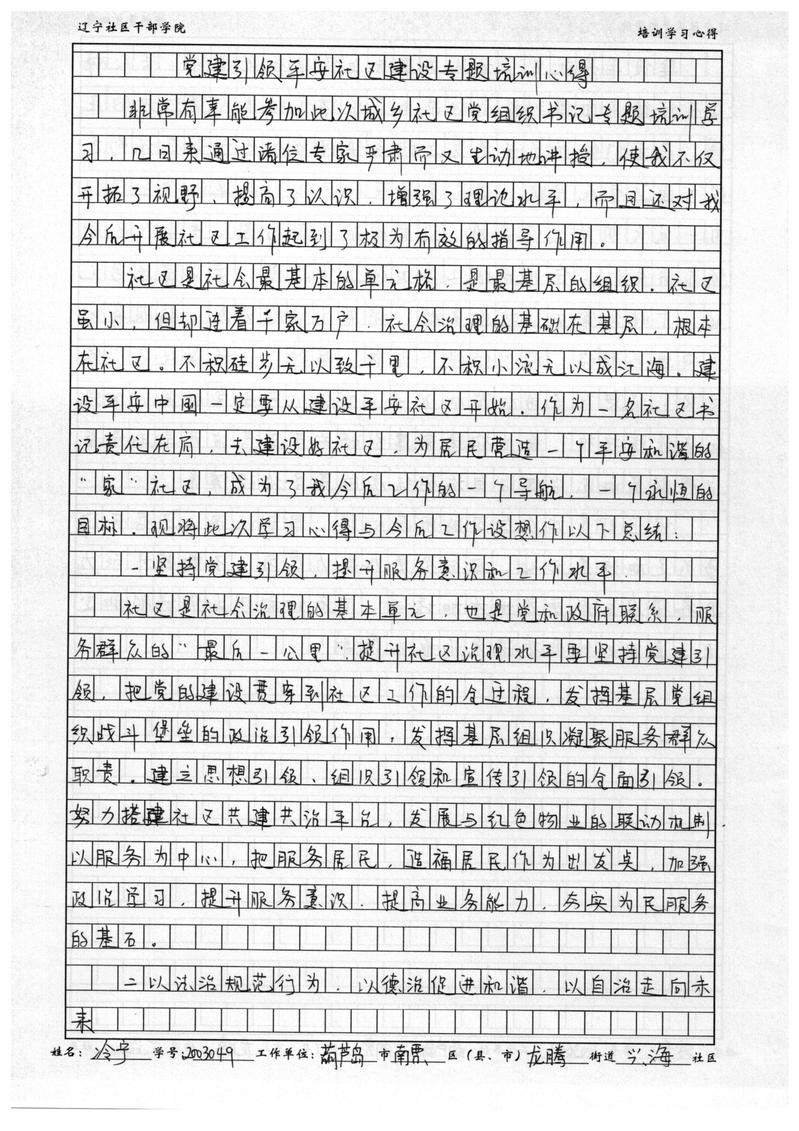 辽宁社区干部学院 培训学习心得
党建引领平安社区建设专题培训心得
非常有幸能参加此次城乡社区党组织书记专题培训学
习，几日来通过诸位专家严肃而又生动地讲授，使我不仅
开拓了视野、提高了认识，增强了理论水平，而且还对我
今后开展社区工作起到了极为有效的指导作用。
社区是社会最基本的单元格，是最基层的组织，社区
虽小，但却连着千家万户，社会治理的基础在基层，根本
在社区。不积硅步无以致千里，不积小流无以成江海。建
设平安中国一定要从建设平安社区开始，作为一名社区书
记责任在肩，去建设好社区，为居民营造一个平安和谐的
“家”社区，成为了我今后工作的一个导航，一个永恒的
目标，现将此次学习心得与今后工作设想作以下总结：
一坚持党建引领，提升服务意识和工作水平.
社区是社会治理的基本单元，也是党和政府联系，服
务群众的“最后一公里”，提升社区治理水平要坚持党建引
领，把党的建设贯穿到社区工作的全过程，发挥基层党组
织战斗堡垒的政治引领作用，发挥基层组识凝聚服务群众
职责。建立思想引领、组识引领和宣传引领的全面引领。
努力搭建社区共建共治平台，发展与红色物业的联动机制
以服务为中心，把服务居民，造福居民作为出发点，加强
政治学习，提升服务意识，提高业务能力，夯实为民服务
的基石。
二以法治规范行为，以德治促进和谐，以自治走向未
来
姓名：冷宁 学号：2003049 工作单位：葫芦岛市南票区（县、市）龙腾街道兴海社区